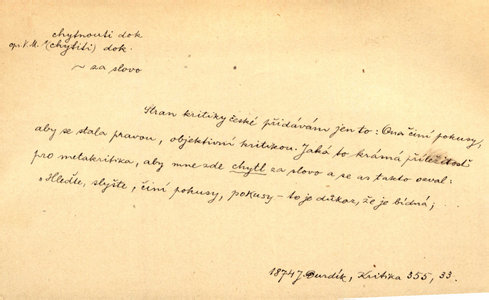 chytnouti dok
op. V. M. (chytiti) dok.
~ za slovo
Stran kritiky české přidávám jen to: Ona činí pokusy,
aby se stala pravou, objektivní kritikou. Jaká to krásná příležitosť
pro metakritika, aby mne zde chytl za slovo a se as takto ozval:
"Hleďte, slyšte, činí pokusy, pokusy – to je důkaz, že je bídná; . .
1874 J. Durdík, Kritika 355, 33.